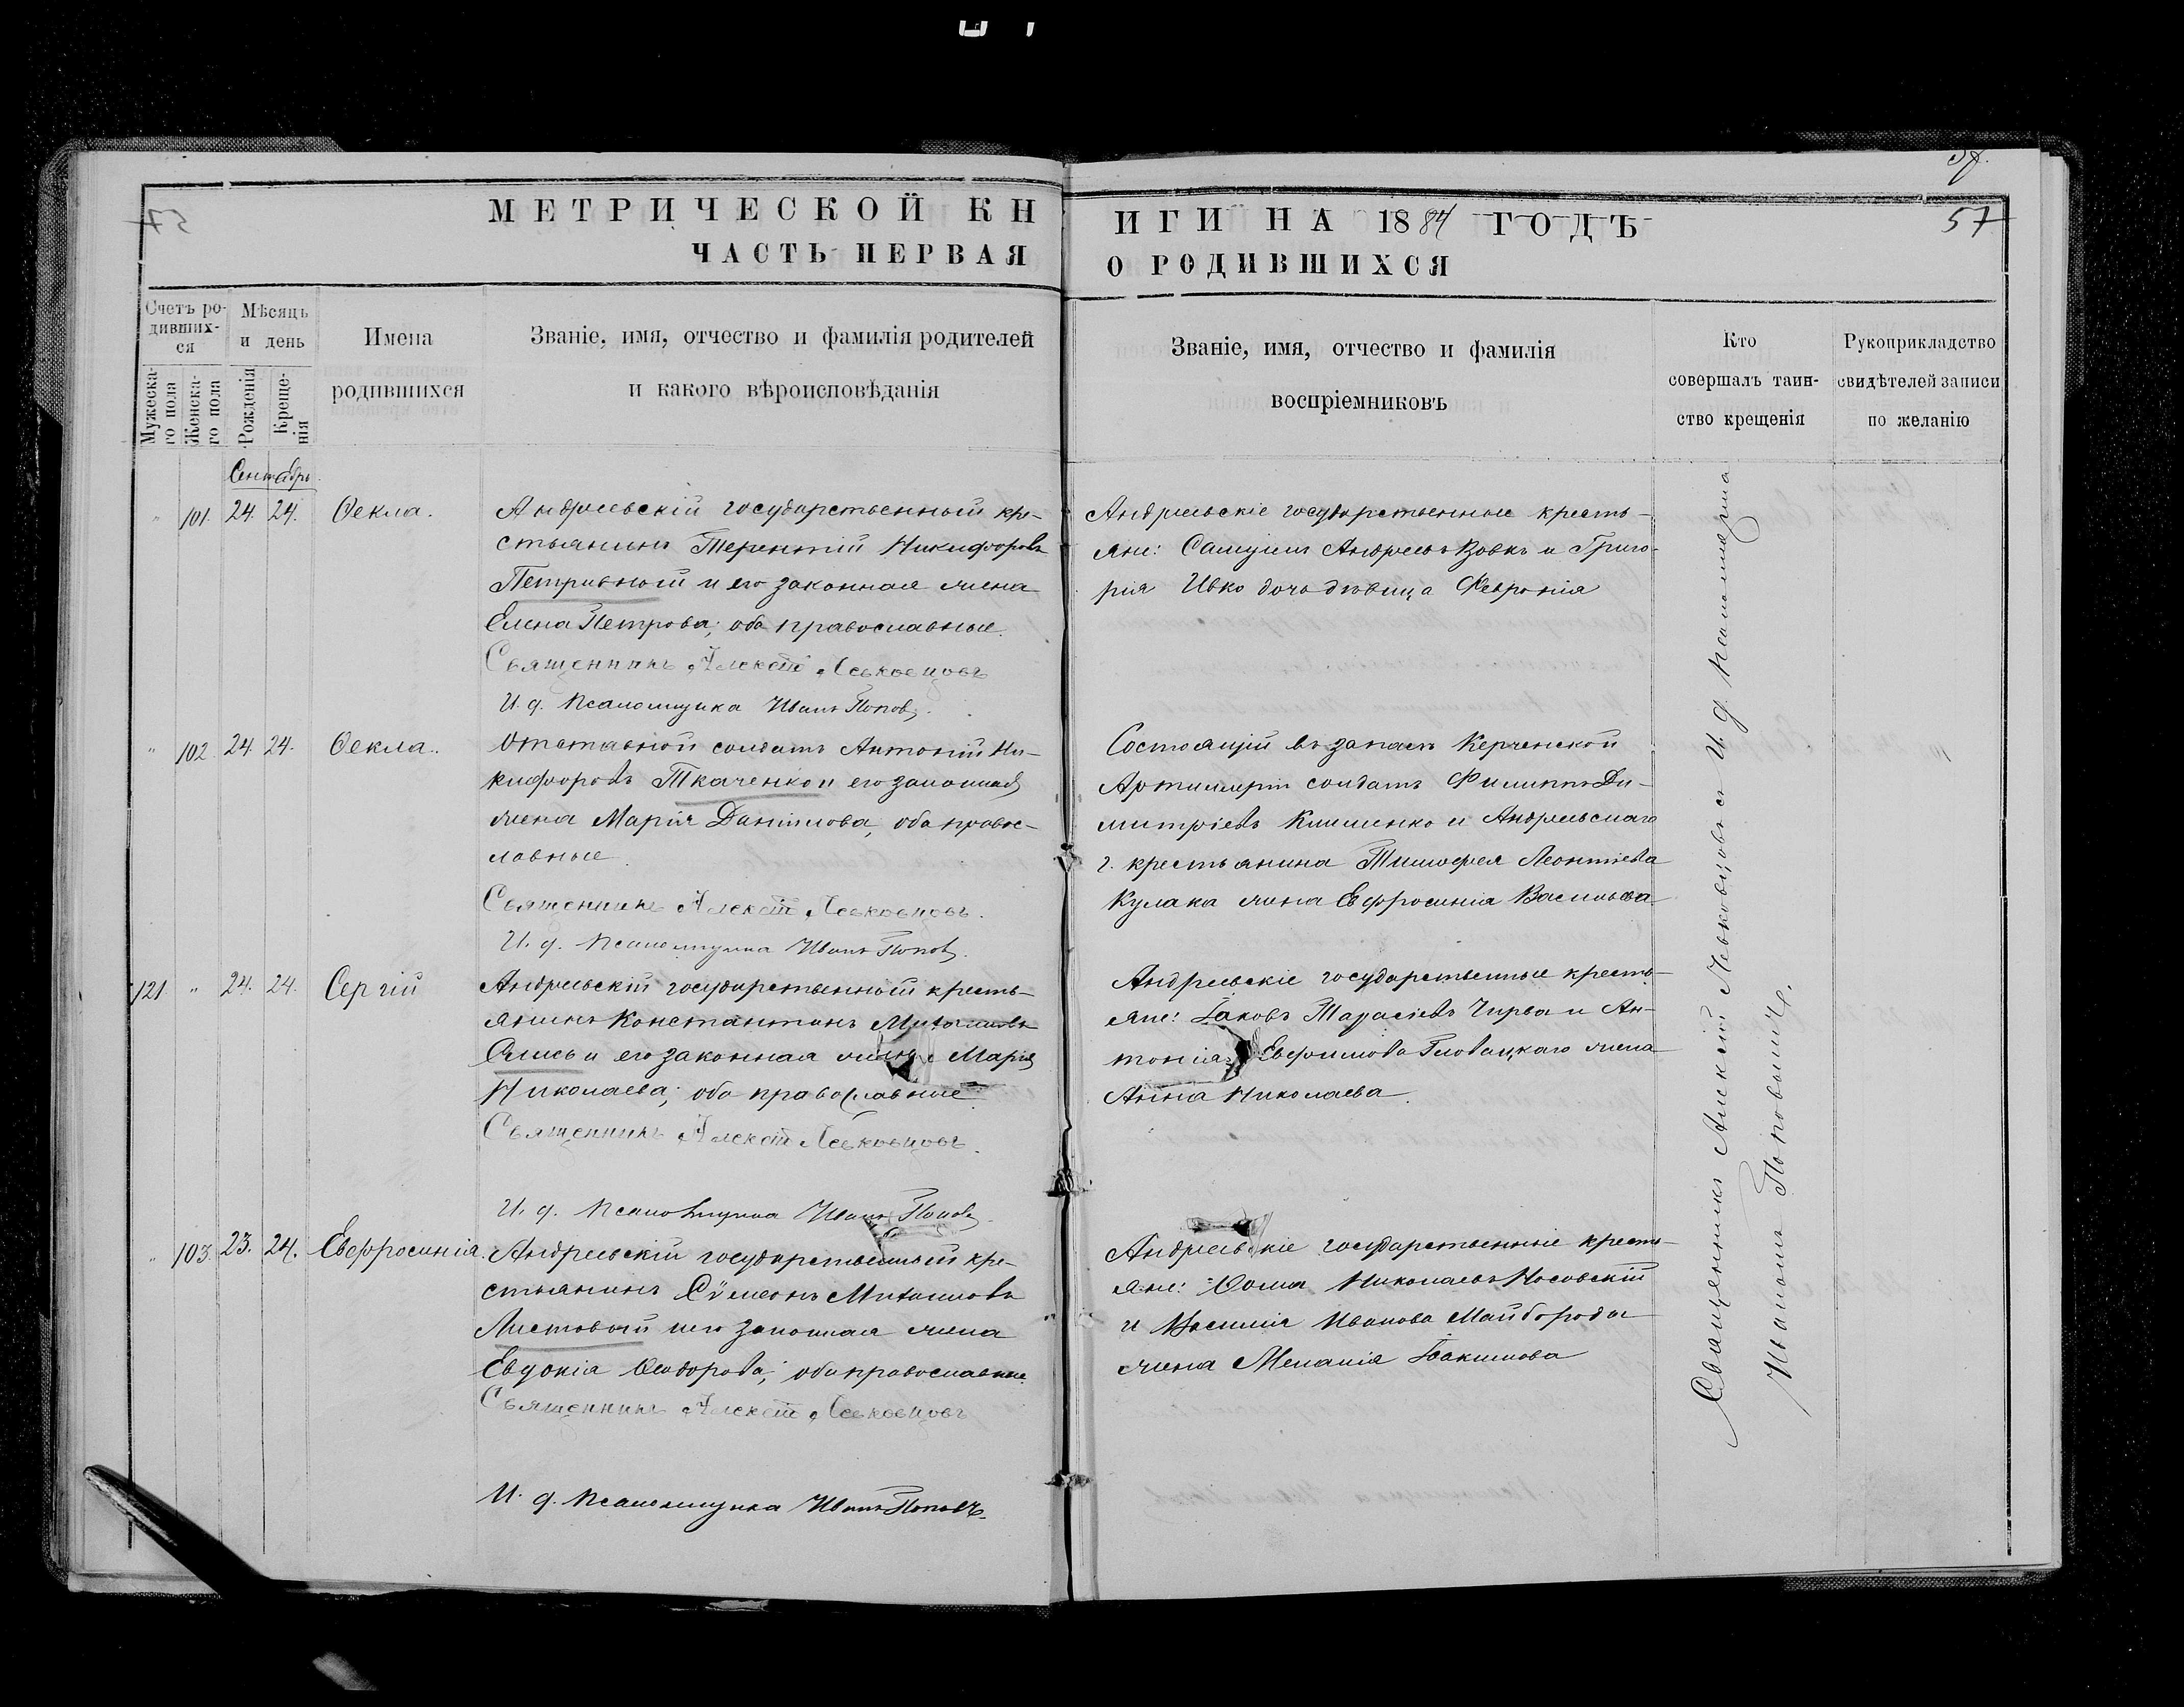 57
МЕТРИЧЕСКОЙ КНИГИ НА 1884 ГОДЪ
57
ЧАСТЬ ПЕРВАЯ О РОДИВШИХСЯ
Счетъ ро-
дивших-
ся
Мужеска-
го пола
Женска-
го пола
Мѣсяцъ
и день
Рожденія
Креще-
нія
Имена
родившихся
Званіе, имя, отчество и фамилія родителей
и какого вѣроисповѣданія
Званіе, имя, отчество и фамилія
воспріемниковъ
Кто
совершалъ таин-
ство крещенія
Рукоприкладство
свидѣтелей записи
по желанію
Сентябрь
" 101. 24. 24. Ѳекла.
Андреевскій государственный кре-
стьянинъ Терентій Никифоровъ
Петривной и его законная жена
Елена Петрова; оба православные.
Священникъ Алексій Леьковцовъ
И. д. Псаломщика Иванъ Попов
Андреевскіе государственные кресть-
яне: Самуилъ Андреевъ Вовкъ и Григо-
рія Ивко дочь дѣвица Февронія
" 102. 24. 24. Ѳекла.
Отставной солдатъ Антоній Ни-
кифоровъ Ткаченко и его законная
жена Марія Даниилова, оба правос-
лавные.
Священникъ Алексій Леьковцовъ.
И. д. Псаломщика Иванъ Попов
Состоящій въ запасѣ Керченской
Артиллеріи солдатъ Филиппъ Ди-
митріевъ Клименко и Андреевскаго
г. крестьянина Тимофея Леонтіева
Кулака жена Евфросинія Васильева
121 " 24. 24. Сергій
Андреевскій государственный кресть-
янинъ Константинъ Михаиловъ
и его законная жена Марія
Николаева; оба православные.
Священникъ Алексій Леьковцовъ.
И. д. Псаломщика Иванъ Попов
Андреевскіе государственные кресть-
яне: Іаковъ Тарасіевъ Чирва и Ан-
тонія Евфимова Гловацкаго жена
Анна Николаева.
" 103. 23. 24. Евфросинія.
Андреевскій государственный кре-
стьянинъ Сѵмеонъ Михаиловъ
Листовый и его законная жена
Евдокія Ѳеодорова; оба православные.
Священникъ Алексій Леьковцовъ
И. д. Псаломщика Иванъ Поповъ.
Андреевскіе государственные кресть-
яне: Ѳома Николаевъ Носовскій
и Василія Иванова Майбороды
жена Меланія Іоакимова
Священникъ Алексій Левковцовъ съ И. д. псаломщика
Иваномъ Поповымъ.